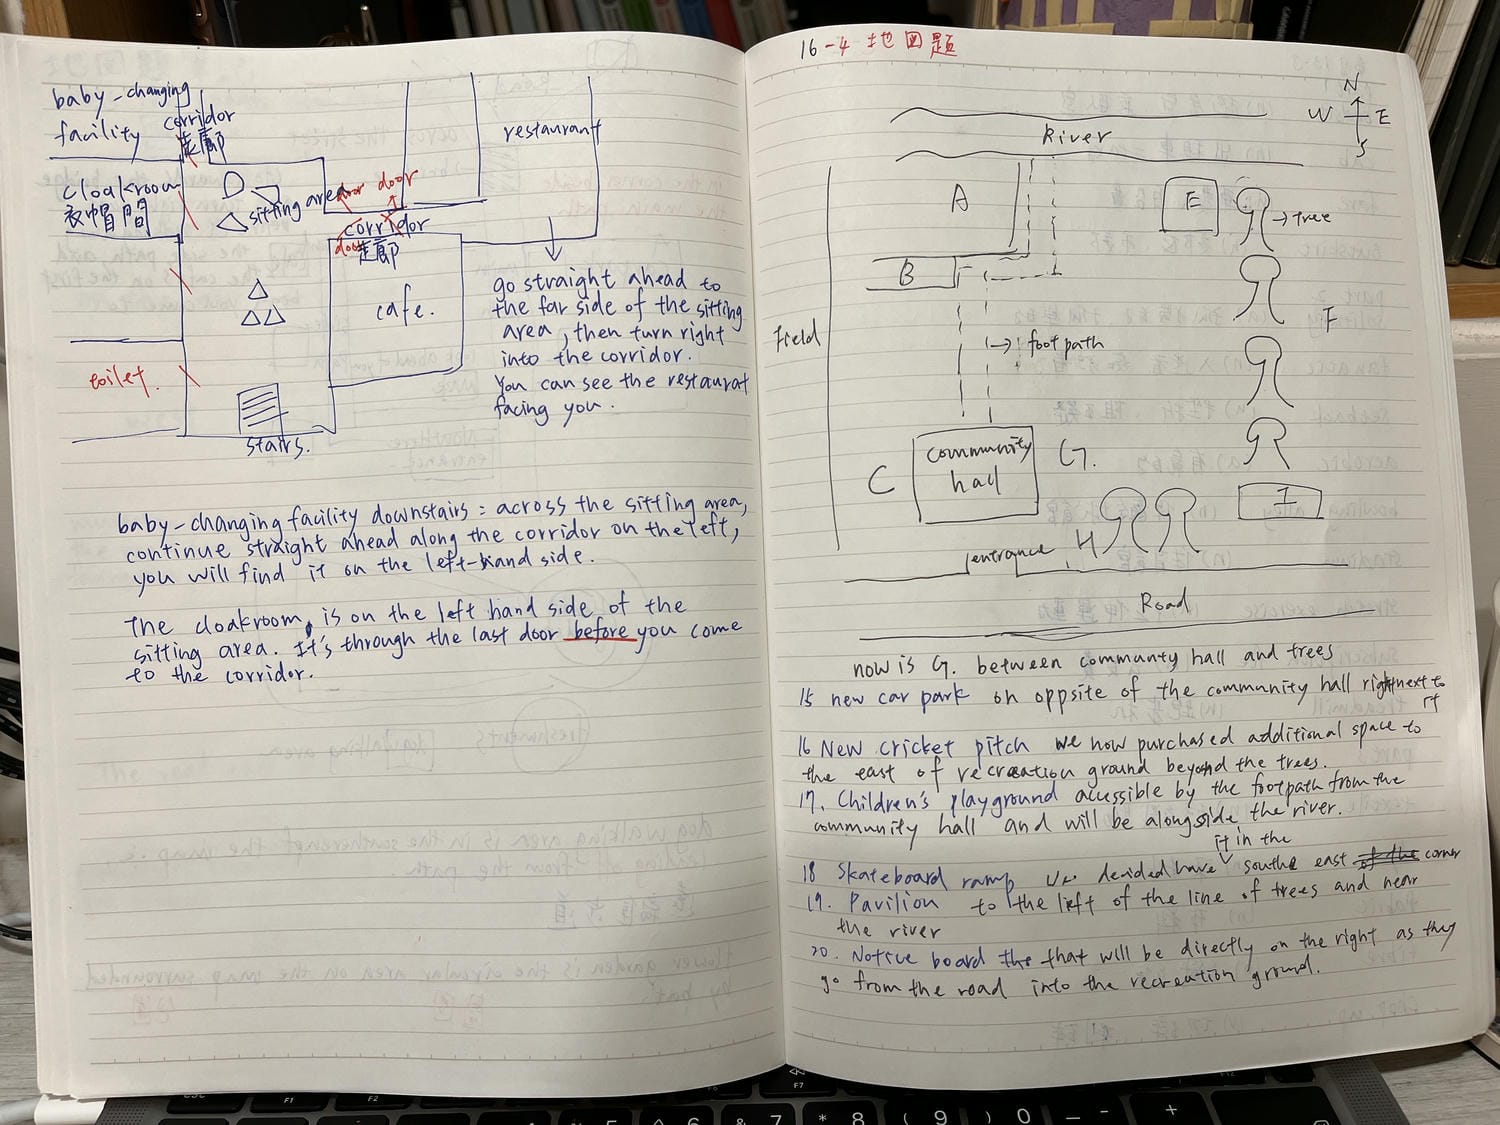 baby-changing
facility
corridor
走廊
cloakroom
衣帽間
sitting area
door
door
corridor
door
走廊
restaurant
cafe.
toilet.
stairs.
go straight ahead to
the far side of the sitting
area, then turn right
into the corridor.
You can see the restaurat
facing you.
baby-changing facility downstairs: across the sitting area,
continue straight ahead along the corridor on the left,
you will find it on the left-hand side.
The cloakroom is on the left hand side of the
sitting area. It's through the last door before you come
to the corridor.
16-4 地図题
N
W E
S
River
A
E
→tree
B
F
Field
→footpath
C
community
hall
G.
I
entrance
H
Road
now is G. between communty hall and trees
15 new car park on oppsite of the community hall right next to
it
16 New cricket pitch we now purchased additional space to
the east of recreation ground beyond the trees.
17. Children's playground acessible by the footpath from the
community hall and will be alongside the river.
it in the
18 Skateboard ramp decided have southe east of the corner
19. Pavilion to the left of the line of trees and near
the river
20. Notive board the that will be directly on the right as they
go from the road into the recreation ground.
F1
F2
F7
5
6
&
7
*
8
(
9
)
0
+